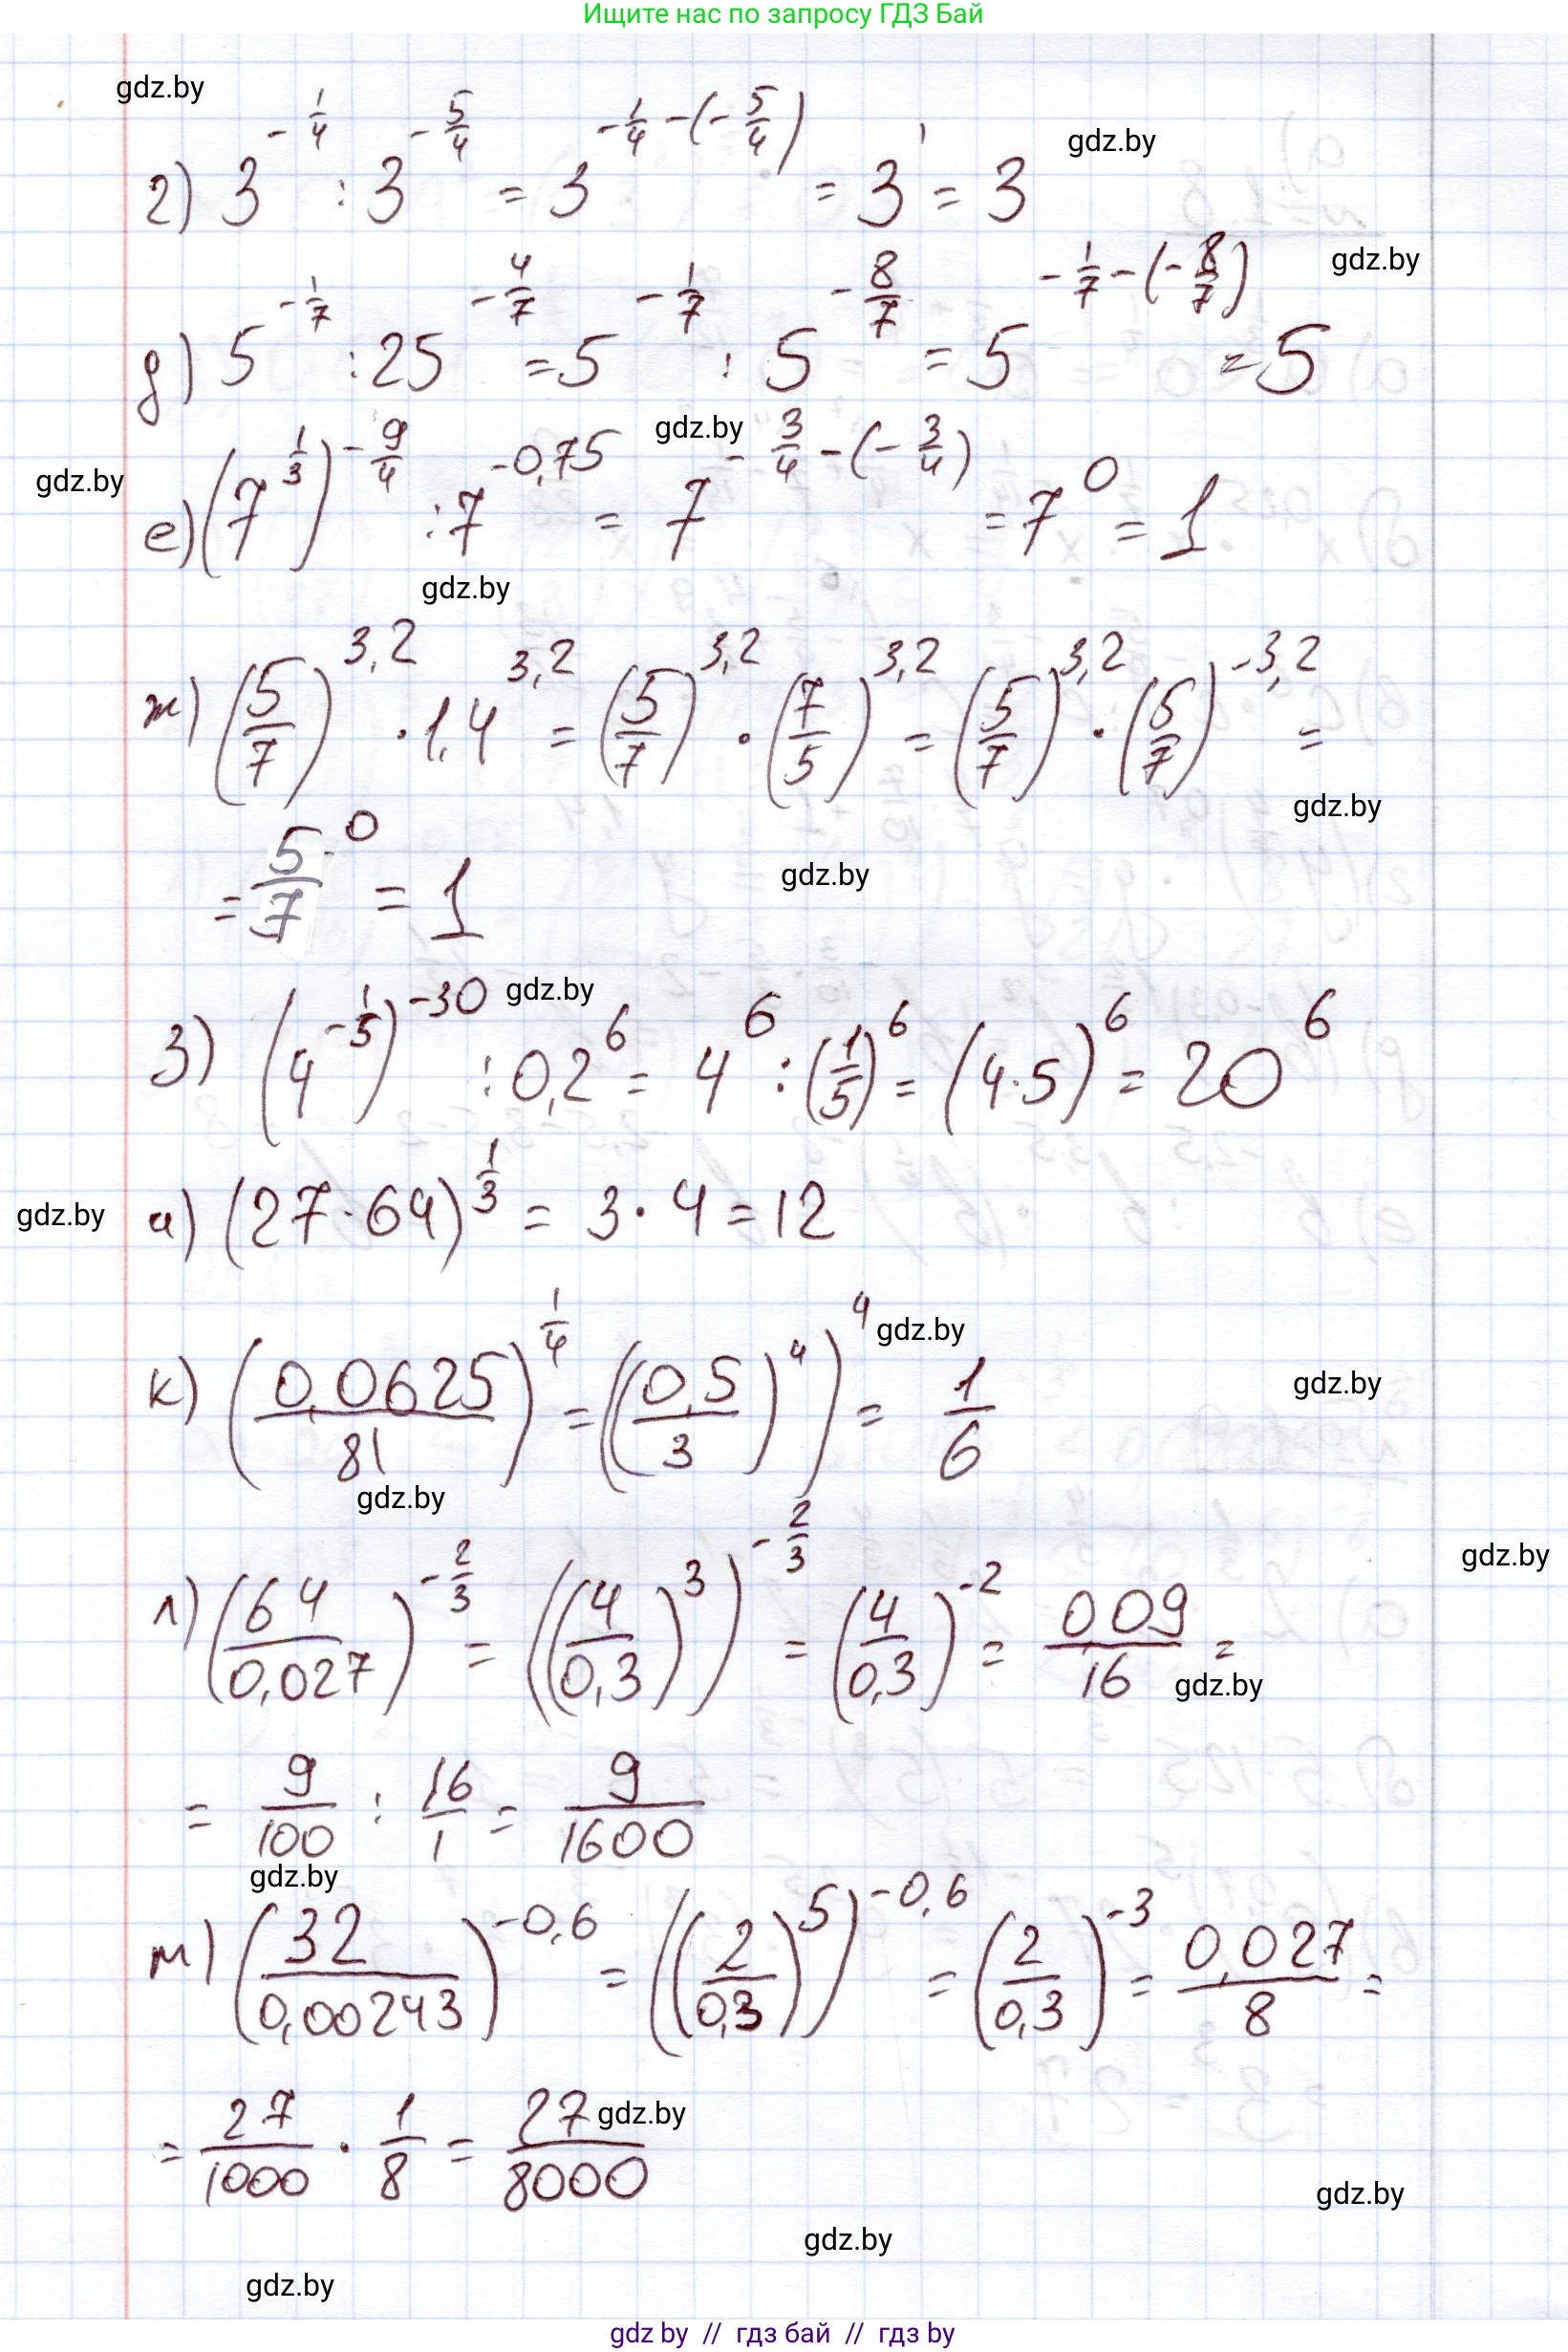 Ищите нас по запросу ГДЗ Бай
gdz.by
г) 3^(-1/4) : 3^(-5/4) = 3^(-1/4-(-5/4)) = 3^1 = 3
gdz.by
gdz.by
д) 5^(-1/7) : 25^(-4/7) = 5^(-1/7) : 5^(-8/7) = 5^(-1/7-(-8/7)) = 5
gdz.by
gdz.by
е) (7^(1/3))^(-9/4) : 7^(-0,75) = 7^(-3/4-(-3/4)) = 7^0 = 1
gdz.by
ж) (5/7)^3,2 · 1,4^3,2 = (5/7)^3,2 · (7/5)^3,2 = (5/7)^3,2 · (5/7)^(-3,2) =
gdz.by
= 5/7^0 = 1
gdz.by
gdz.by
з) (4^(-1/5))^(-30) : 0,2^6 = 4^6 : (1/5)^6 = (4·5)^6 = 20^6
gdz.by
и) (27·64)^(1/3) = 3·4 = 12
gdz.by
gdz.by
к) (0,0625/81)^(1/4) = ((0,5/3)^4)^4 = 1/6
gdz.by
gdz.by
л) (64/0,027)^(-2/3) = ((4/0,3)^3)^(-2/3) = (4/0,3)^(-2) = 0,09/16 =
gdz.by
= 9/100 : 16/1 = 9/1600
gdz.by
м) (32/0,00243)^(-0,6) = ((2/0,3)^5)^(-0,6) = (2/0,3)^(-3) = 0,027/8 =
= 27/1000 · 1/8 = 27/8000
gdz.by
gdz.by
gdz.by
gdz.by
gdz.by // гдз бай // гдз by